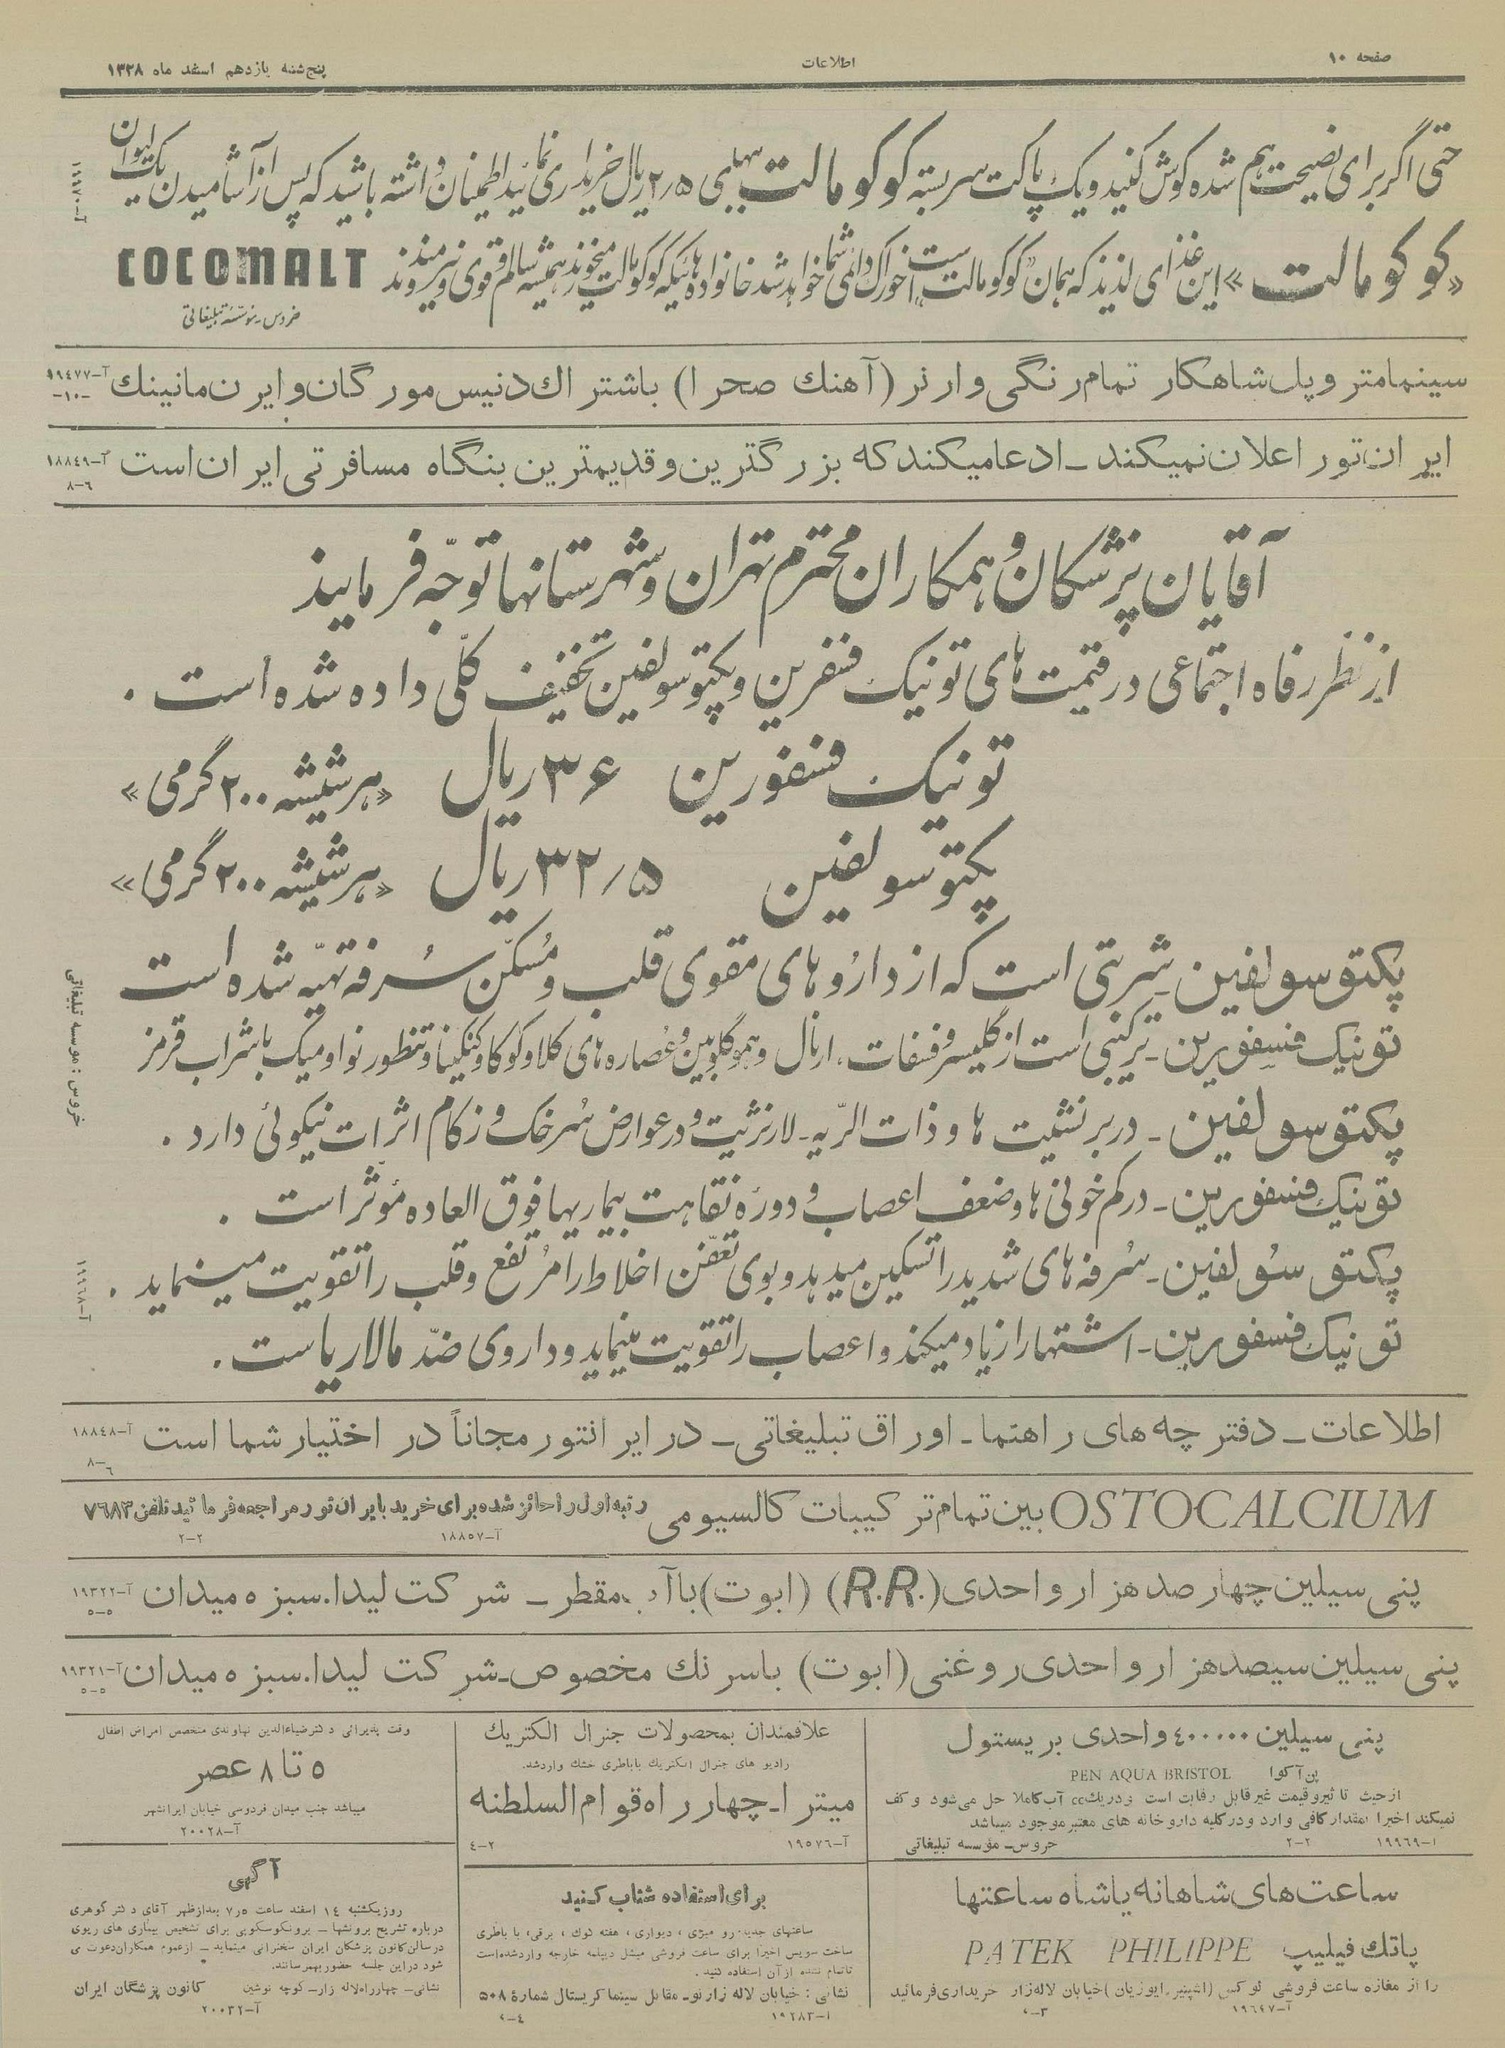 صفحه ۱۰
اطلاعات
پنج‌شنبه یازدهم اسفند ماه ۱۳۲۸
حتی اگر برای نصیحت هم شده گوش کنید و یک پاکت سربسته کوکو مالت ببهای ۲٫۵ ریال خریداری نمائید اطمینان داشته باشید که پس از آشامیدن یک لیوان
«کوکو مالت» این غذای لذیذ که همان کوکو مالت است خوراک دائمی شما خواهد شد خانواده هائیکه کوکو مالت میخورند همیشه سالم و قوی و نیرومندند
COCOMALT
خروس - مؤسسه تبلیغاتی
آ-۱۹۹۷۰
سینما متروپل شاهکار تمام رنگی وارنر (آهنك صحرا) باشتراك دنیس مورگان و ایرن مانینك
آ-۱۹٤۷۷
-۱۰-
ایران تور اعلان نمیکند ـ ادعا میکند که بزرگترین و قدیمترین بنگاه مسافرتی ایران است
آ-۱۸۸٤۹
۸-٦
آقایان پزشکان و همکاران محترم تهران و شهرستانها توجّه فرمایند
از نظر رفاه اجتماعی در قیمت های تونیک فسفرین و پکتوسولفین تخفیف کلّی داده شده است .
تونیک فسفورین ۳۶ ریال «هر شیشه ۲۰۰ گرمی»
پکتوسولفین ۳۲٫۵ ریال «هر شیشه ۲۰۰ گرمی»
پکتوسولفین - شربتی است که از داروهای مقوی قلب و مُسکّن سُرفه تهیّه شده است
تونیک فسفورین - ترکیبی است از گلیسروفسفات ، ارنال و هموگلوبین و عصاره های کلا و کوکا و کنکینا و تنطور نواومیک با شراب قرمز
پکتوسولفین - در برنشیت ها و ذات الریّه - لارنژیت و در عوارض سُرخک و زکام اثرات نیکوئی دارد .
تونیک فسفورین - در کم خونی ها و ضعف اعصاب و دوره نقاهت بیماریها فوق العاده مؤثر است .
پکتوسولفین - سُرفه های شدید را تسکین میدهد و بوی تعفّن اخلاط را مُرتفع و قلب را تقویت مینماید .
تونیک فسفورین - اشتها را زیاد میکند و اعصاب را تقویت مینماید و داروی ضدّ مالاریاست .
خروس : موسسه تبلیغاتی
آ-۱۹۹٦۸
اطلاعات ـ دفترچه های راهنما ـ اوراق تبلیغاتی ـ در ایرانتور مجاناً در اختیار شما است
آ-۱۸۸٤۸
۸-٦
OSTOCALCIUM بین تمام ترکیبات کالسیومی رتبه اول را حائز شده برای خرید بایران تور مراجعه فرمائید تلفن ۷٦۸۳
آ-۱۸۸۵۷
۲-۲
پنی سیلین چهارصد هزار واحدی (R.R.) (ابوت) با آب مقطر ـ شرکت لیدا.سبزه میدان
آ-۱۹۳۲۲
۵-۵
پنی سیلین سیصد هزار واحدی روغنی (ابوت) باسرنك مخصوص ـ شرکت لیدا.سبزه میدان
آ-۱۹۳۲۱
۵-۵
پنی سیلین ٤۰۰۰۰۰ واحدی بریستول
پن آکوا PEN AQUA BRISTOL
از حیث تاثیر و قیمت غیر قابل رقابت است و در یك cc آب کاملا حل می‌شود و کف
نمیکند اخیرا بمقدار کافی وارد و در کلیه داروخانه های معتبر موجود میباشد
خروس ـ مؤسسه تبلیغاتی
۲-۲
آ-۱۹۹٦۹
ساعت های شاهانه یا شاه ساعتها
پاتك فیلیپ PATEK PHILIPPE
را از مغازه ساعت فروشی لوکس خیابان لاله زار خریداری فرمائید
آ-۱۹٦٤۷
علاقمندان بمحصولات جنرال الکتریك
رادیو های جنرال الکتریك با باطری خشك وارد شد.
میترا ـ چهارراه قوام السلطنه
آ-۱۹۵۷٦
٤-۲
برای استفاده شتاب کنید
ساعتهای جدید رومیزی ، دیواری ، هفته کوك ، برقی، با باطری
ساخت سویس اخیرا برای ساعت فروشی میشل دیپلمه خارجه وارد شده است
تا تمام نشده از آن استفاده کنید .
نشانی : خیابان لاله زار نو ـ مقابل سینما کریستال شمارهٔ ۵۰۸
آ-۱۹۲۸۳
وقت پذیرائی دکتر ضیاءالدین نهاوندی متخصص امراض اطفال
۵ تا ۸ عصر
میباشد جنب میدان فردوسی خیابان ایرانشهر
آ-۲۰۰۲۸
آگهی
روز یکشنبه ۱٤ اسفند ساعت ۷٫۵ بعد از ظهر آقای دکتر گوهری
درباره تشریح برونشها ـ برونکوسکوپی برای تشخیص بیماری های ریوی
در سالن کانون پزشکان ایران سخنرانی مینماید ـ از عموم همکاران دعوت می
شود در این جلسه حضور بهمرسانند.
نشانی ـ چهارراه لاله زار ـ کوچه نوشین کانون پزشگان ایران
آ-۲۰۰۳۲